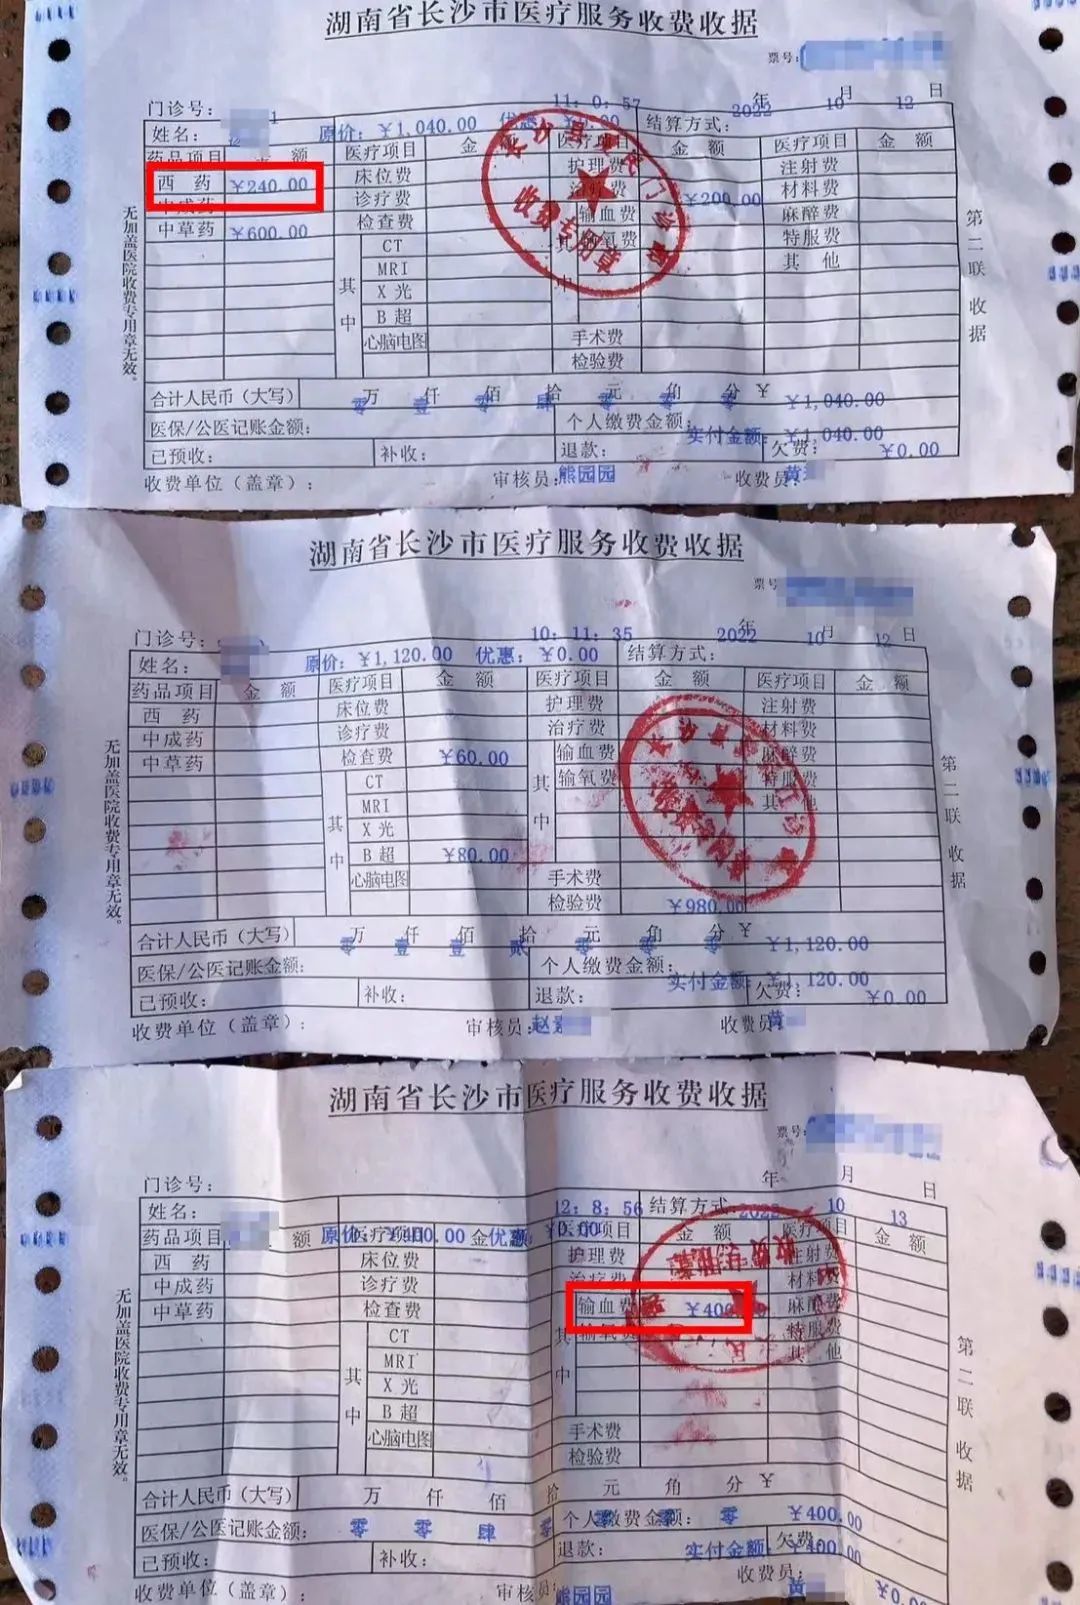 湖南省长沙市医疗服务收费收据
票号:
门诊号: 11:0:57 2022年 10月 12日
姓名: 原价:¥1,040.00 优惠:¥0.00 结算方式:
药品项目 金额 医疗项目 金额 医疗项目 金额 医疗项目 金额
西药 ¥240.00 床位费 护理费 注射费
中成药 诊疗费 治疗费 ¥200.00 材料费
中草药 ¥600.00 检查费 输血费 麻醉费
其中 CT 其中 输氧费 特服费
MRI 其他
X光
B超
心脑电图 手术费
检验费
合计人民币(大写) 零万 壹仟 零佰 肆拾 零元 零角 零分 ¥ ¥1,040.00
医保/公医记账金额: 个人缴费金额: 实付金额:¥1,040.00
已预收: 补收: 退款: 欠费: ¥0.00
收费单位(盖章): 审核员:熊园园 收费员:黄
无加盖医院收费专用章无效。
第二联 收据
收费专用章
湖南省长沙市医疗服务收费收据
票号
门诊号: 10:11:35 2022年 10月 12日
姓名: 原价:¥1,120.00 优惠:¥0.00 结算方式:
药品项目 金额 医疗项目 金额 医疗项目 金额 医疗项目 金额
西药 床位费 护理费 注射费
中成药 诊疗费 治疗费 材料费
中草药 检查费 ¥60.00 其中 输血费 麻醉费
其中 CT 输氧费 特服费
MRI 其他
X光
B超 ¥80.00
心脑电图 手术费
检验费 ¥980.00
合计人民币(大写) 零万 壹仟 壹佰 贰拾 零元 零角 零分 ¥ ¥1,120.00
医保/公医记账金额: 个人缴费金额: 实付金额:¥1,120.00
已预收: 补收: 退款: 欠费: ¥0.00
收费单位(盖章): 审核员:赵 收费员:黄
无加盖医院收费专用章无效。
第二联 收据
湖南省长沙市医疗服务收费收据
票号:
门诊号: 年 月 日
姓名: 12:8:56 结算方式: 10 13
药品项目 金额 原价:¥400.00 优惠:¥0.00 医疗项目 金额 医疗项目 金额 医疗项目 金额
西药 床位费 护理费 注射费
中成药 诊疗费 治疗费 材料费
中草药 检查费 输血费 ¥400 麻醉费
其中 CT 其中 输氧费 特服费
MRI 其他
X光
B超 手术费
心脑电图 检验费
合计人民币(大写) 万 仟 佰 拾 元 角 分 ¥
医保/公医记账金额: 零 零 肆 零 个人缴费金额: 零 零 零 ¥400.00
已预收: 补收: 退款: 实付金额:¥400.00 欠费:
收费单位(盖章): 审核员:熊园园 收费员:黄 ¥0.00
无加盖医院收费专用章无效。
第二联 收据